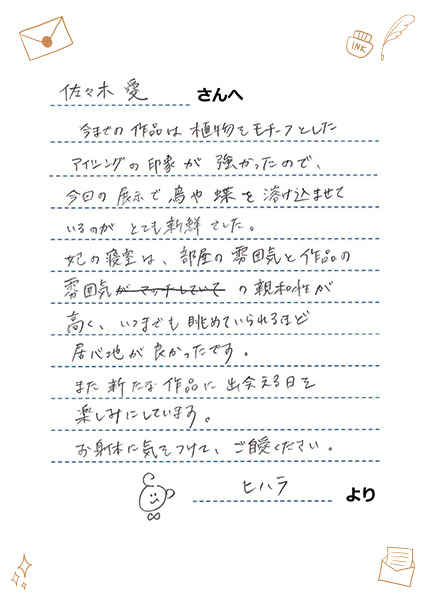 INK
佐々木 愛 さんへ
今までの作品は植物をモチーフとした
アイシングの印象が強かったので、
今回の展示で鳥や蝶を溶け込ませて
いるのがとても新鮮でした。
妃の寝室は、部屋の雰囲気と作品の
雰囲気がマッチしていての親和性が
高く、いつまでも眺めていられるほど
居心地が良かったです。
また新たな作品に出会える日を
楽しみにしています。
お身体に気をつけて、ご自愛ください。
ヒハラ より